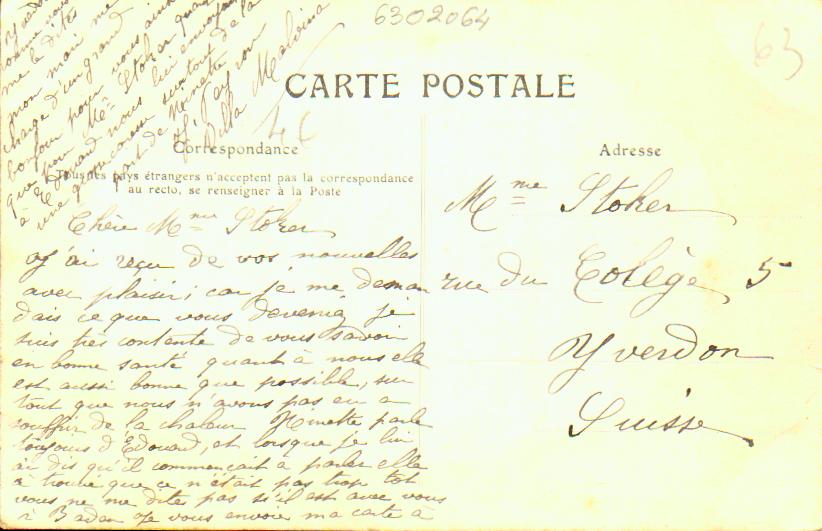 6302064
63
CARTE POSTALE
46
Correspondance
Tous les pays étrangers n'acceptent pas la correspondance
au recto, se renseigner à la Poste
Adresse
Mme Stoker
rue du Colège 5
Yverdon
Suisse
Chère Mme Stoker
J'ai reçu de vos nouvelles
avec plaisir; car je me deman
dais ce que vous deveniez je
suis très contente de vous savoir
en bonne santé quant à nous elle
est aussi bonne que possible, sur
tout que nous n'avons pas eu a
souffrir de la chaleur Ninette parle
toujours d'Edouard, et lorsque je lui
ai dis qu'il commençait a parler elle
a trouvé que ce n'était pas trop tot
vous ne me dites pas s'il est avec vous
à Baden Je vous envoie ma carte à
Yverdon
comme vous
me le dites
mon mari me
charge d'un grand
bonjour pour vous ainsi
que pour Mr Stoker quant
à Edouard nous lui envoyons
une grosse caresse surtout de la
part de Ninette
Villa Malvina